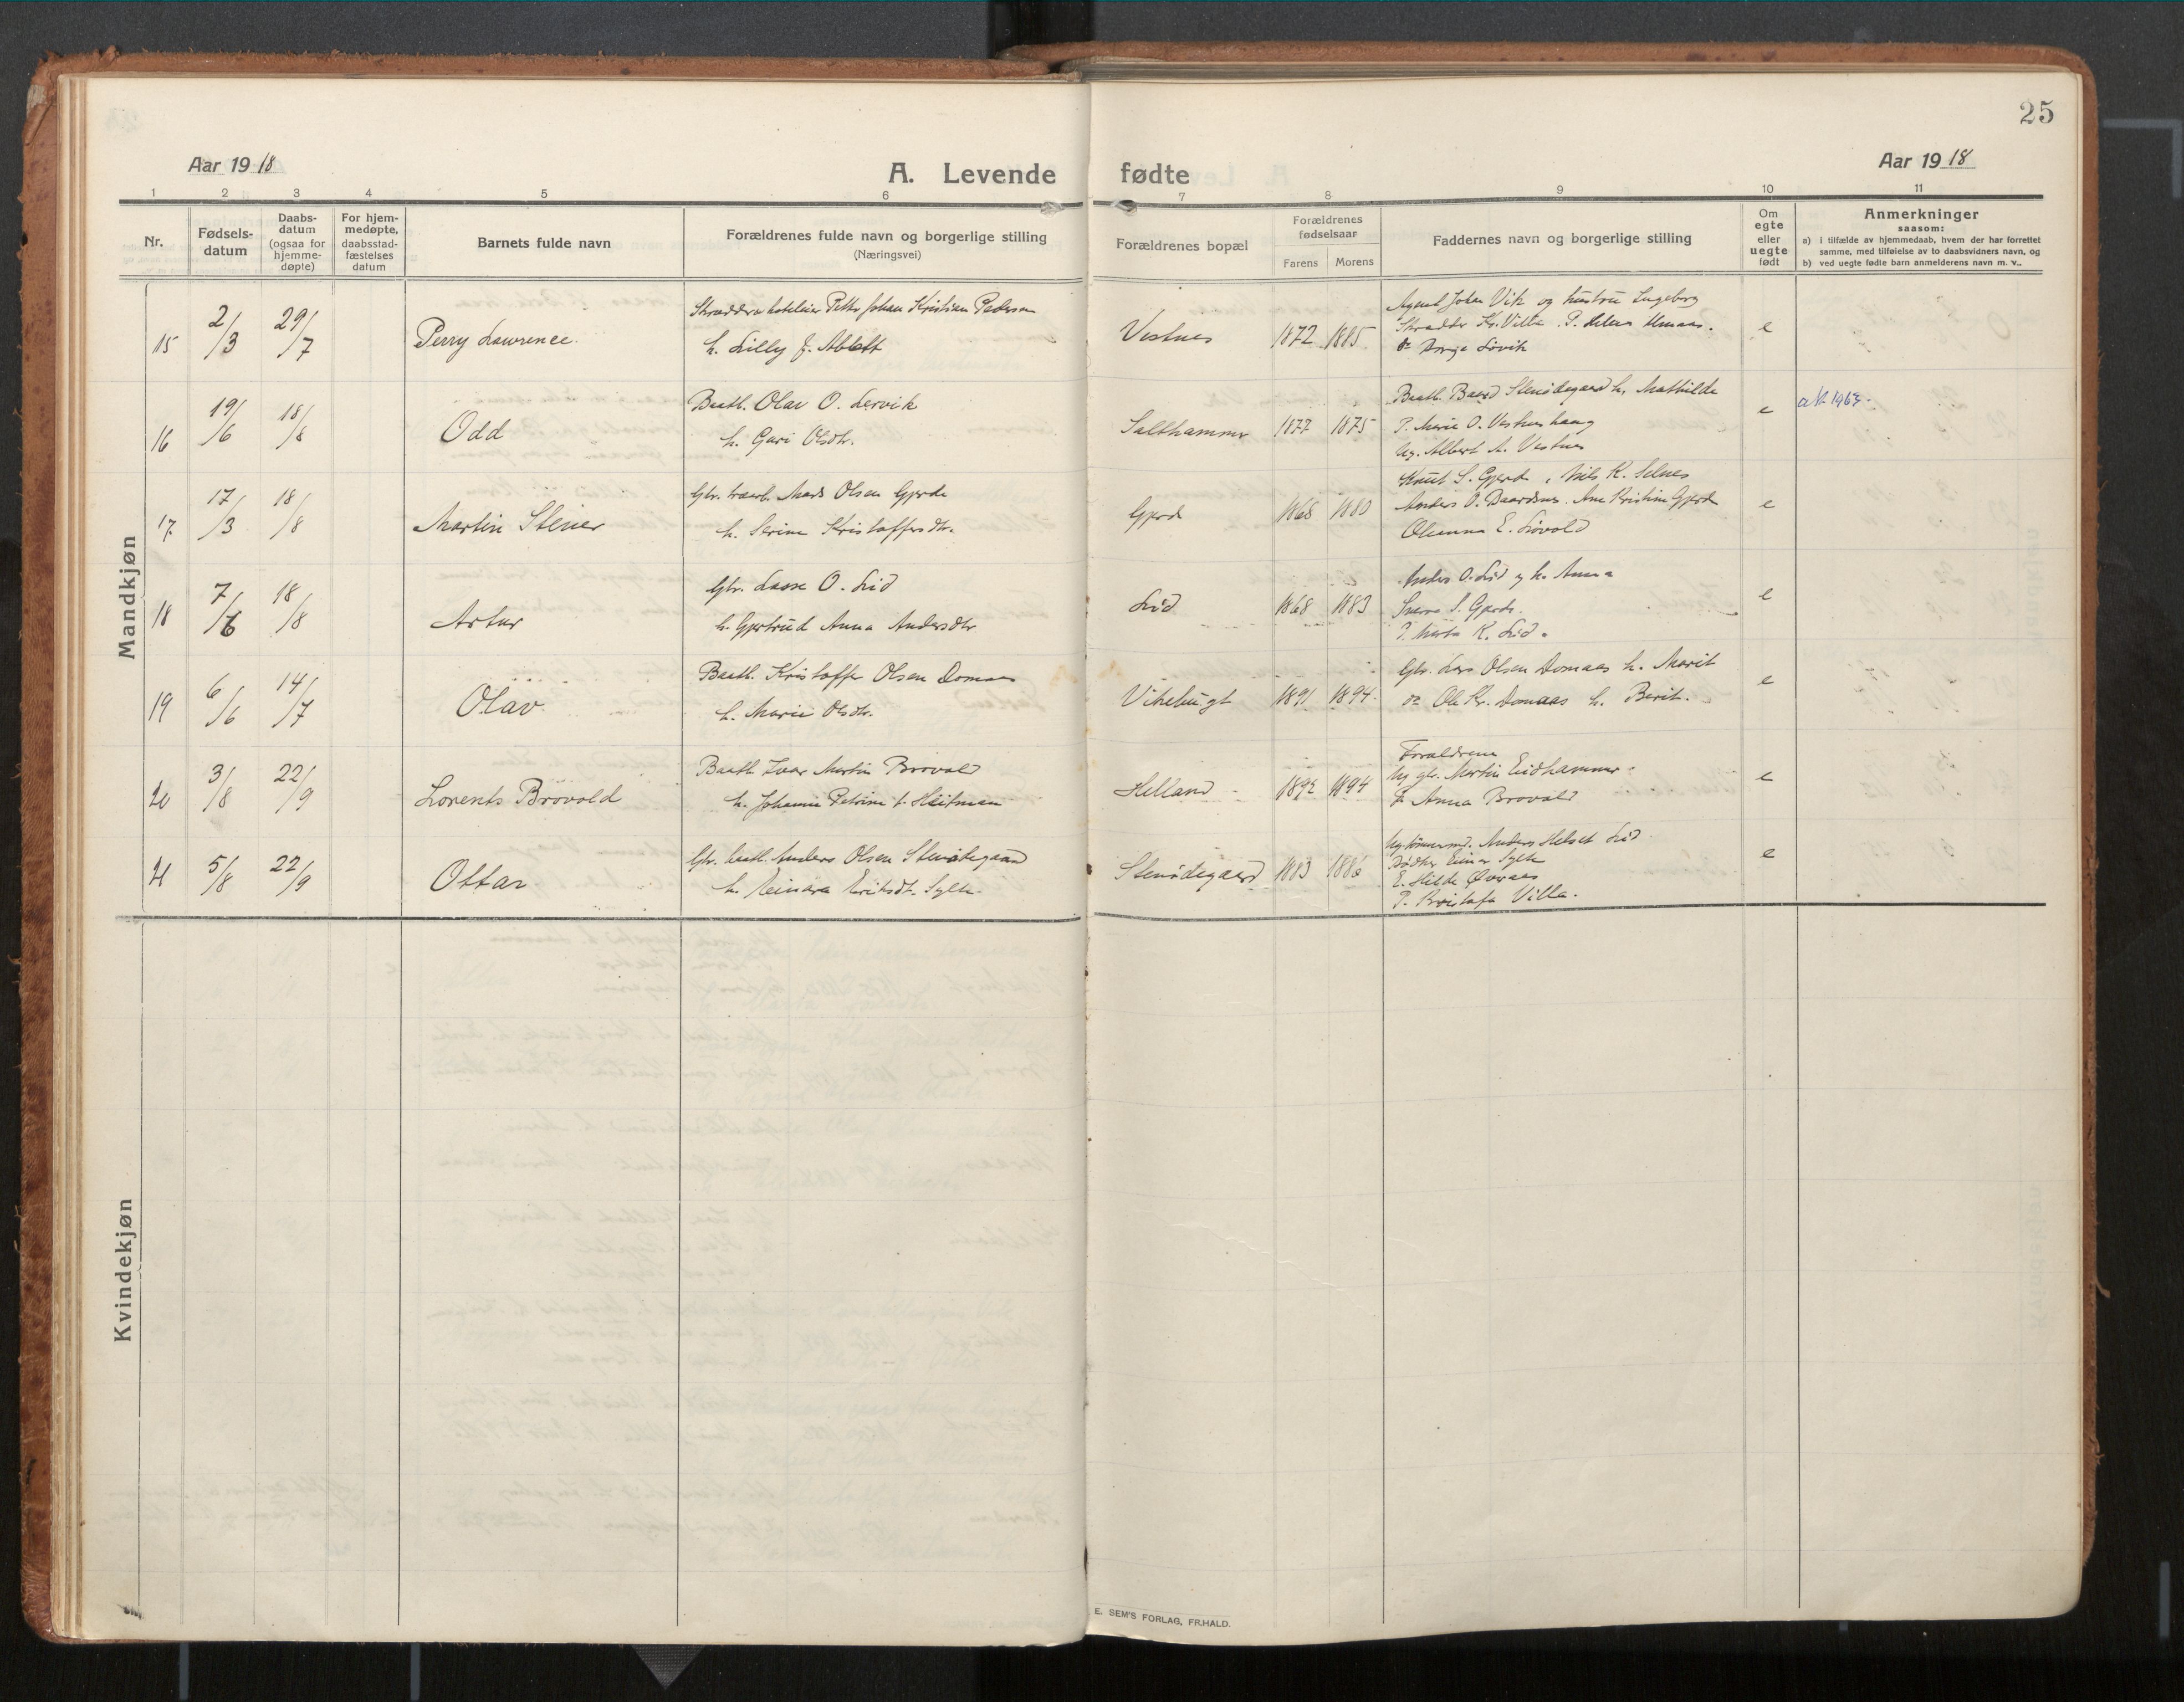 25
Aar 1918
A. Levende fødte
Aar 1918
1 2 3 4 5 6 7 8 9 10 11
Nr.
Fødsels-
datum
Daabs-
datum
(ogsaa for
hjemme-
døpte)
For hjem-
medøpte,
daabsstad-
fæstelses
datum
Barnets fulde navn
Forældrenes fulde navn og borgerlige stilling
(Næringsvei)
Forældrenes bopæl
Forældrenes
fødselsaar
Farens Morens
Faddernes navn og borgerlige stilling
Om
egte
eller
uegte
født
Anmerkninger
saasom:
a) i tilfælde av hjemmedaab, hvem der har forrettet
samme, med tilføielse av to daabsvidners navn, og
b) ved uegte fødte barn anmelderens navn m. v..
Mandkjøn
15 2/3 29/7 Perry Lawrence.
Johan Kristian Pedersen
h. Lilly f. Ablett
Vestnes 1872 1885
Agent Johan Vik og hustru Ingeborg
Skrædder Kr. Villa. P. Helena
Løvik
e
16 19/6 18/8 Odd
Baatb. Olav O. Lervik
h. Guri Olsdtr.
Salthammer 1877 1875
Baatb. Baard Stenødegaard h. Mathilde
P. Marie O. Vestneshaug
Ug. Albert A. Vestnes
e
17 17/3 18/8 Martin Steiner
Gbr. Mads Olsen Gjerde
h. Serine Kristoffersdtr.
Gjerde 1868 1880
Knut S. Gjerde, Nils K. Selnes
Anders O. Baardsnes. Ane Kristine Gjerde
Oleanna E. Løvold
e
18 7/6 18/8 Artur
Gbr. Lasse O. Lid
h. Gjertrud Anna Andersdtr
Lid 1868 1883
Anders O. Lid og h. Anna
S. Gjerde.
P. K. Lid.
e
19 6/6 14/7 Olav
Baatb. Kristoffer Olsen Domaas
h. Marie Olsdtr.
Vikebugt 1891 1894.
Gbr. Lars Olsen Domaas h. Marit
Ole Kr. Domaas h. Berit.
e
20 3/8 22/9 Lorents Brovold
Baatb. Ivar Martin Brovold
h. Johanne Petrine f. Heitman
Helland 1892 1894
Forældrene
Ug. gbr. Martin Eidhammer
P. Anna Brovold
e
21 5/8 22/9 Ottar
Gbr. baatb. Anders Olsen Stenødegaard
h. Einara Eriksdt. Sylte.
Stenødegaard 1883 1886
Ug. tømmermd. Anders Helset Lid
Bødker Einar Sylte
E. Hilde Øveraas
P. Villa.
e
Kvindekjøn
E. SEM'S FORLAG, FR.HALD.